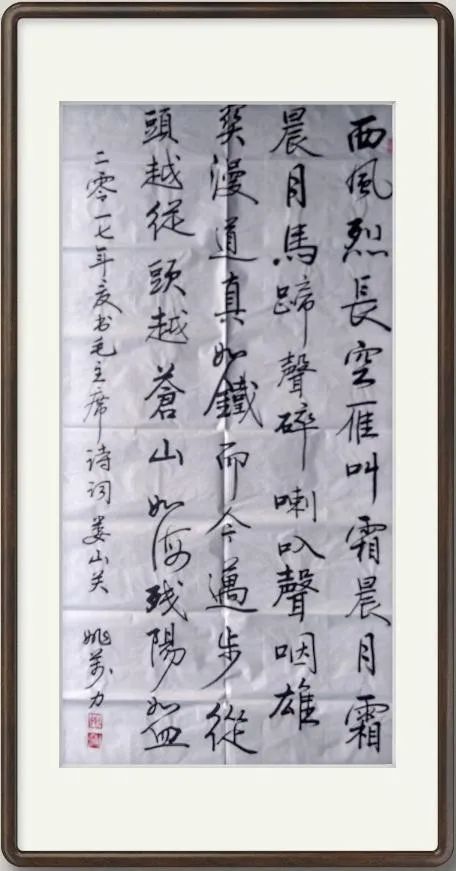 西風烈長空雁叫霜晨月霜
晨月馬蹄聲碎喇叭聲咽雄
漫道真如鐵而今邁步從
頭越從頭越蒼山如海残陽如血
二零一七年夏书毛主席诗词娄山关 姚萬力